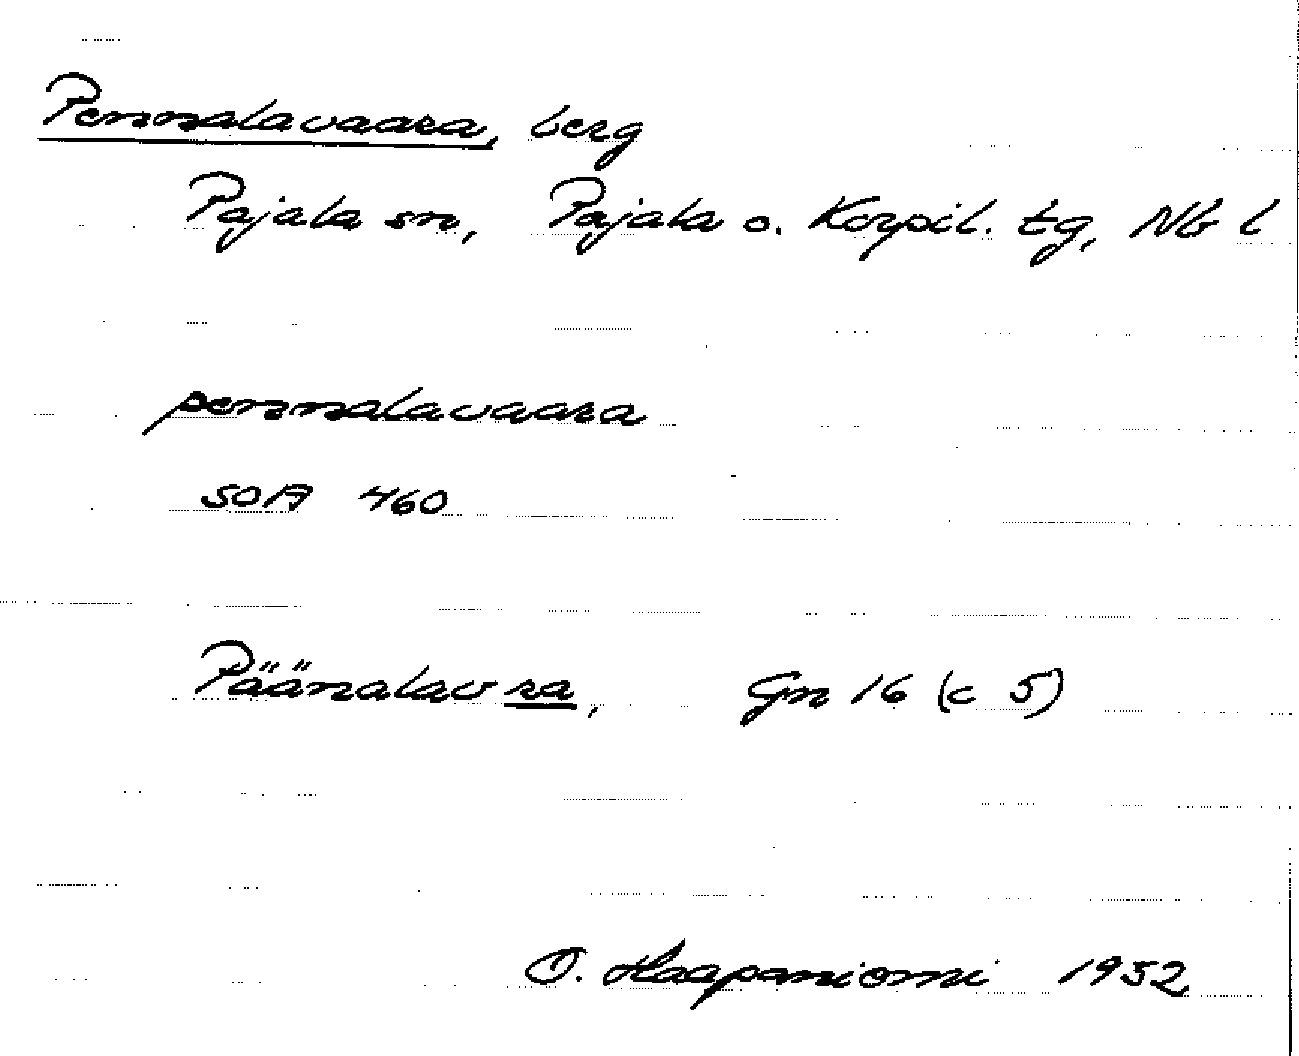 Pennalavaara, berg
Pajala sn, Pajala o. Korpil. tg, Nb l
pennalavaara
SOA 460
Päänalavra, Gn 16 (c 5)
O. Haapaniemi 1952